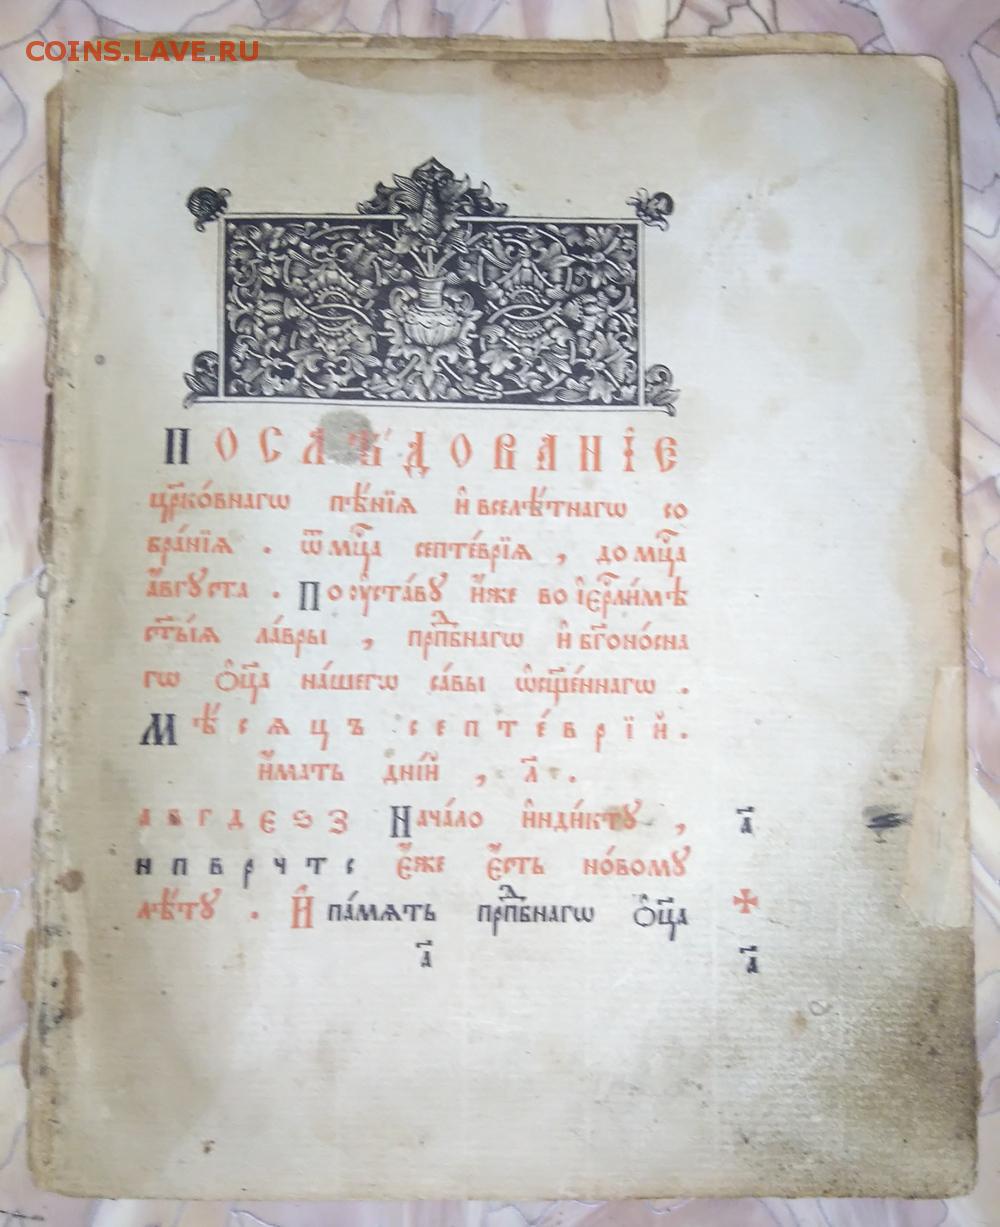 COINS.LAVE.RU
ПОСЛѢДОВАНІЕ
цр҃ко́внагѡ пѣ́нїѧ и҆ вселѣ́тнагѡ со
бра́нїѧ . ѿ мц҃а септе́врїѧ , до мц҃а
а҆́вгꙋста . По ᲂу҆ста́вꙋ и҆́же во і҆ерⷭ҇ли́мѣ
ст҃ы́ѧ ла́вры , прпⷣбнагѡ и҆ бг҃оно́сна
гѡ ѻ҆ц҃а на́шегѡ са́вы ѡ҆сщ҃е́ннагѡ .
Мѣ́сѧцъ септе́врїй .
и҆́мать дні́й , л҃ .
а в г д є ѕ з Нача́ло и҆нди́ктꙋ , а҃
н п в р ч т с є҆́же є҆́сть но́вомꙋ
лѣ́тꙋ . И҆ па́мѧть прпⷣбнагѡ ѻ҆ц҃а ✠
а҃ а҃